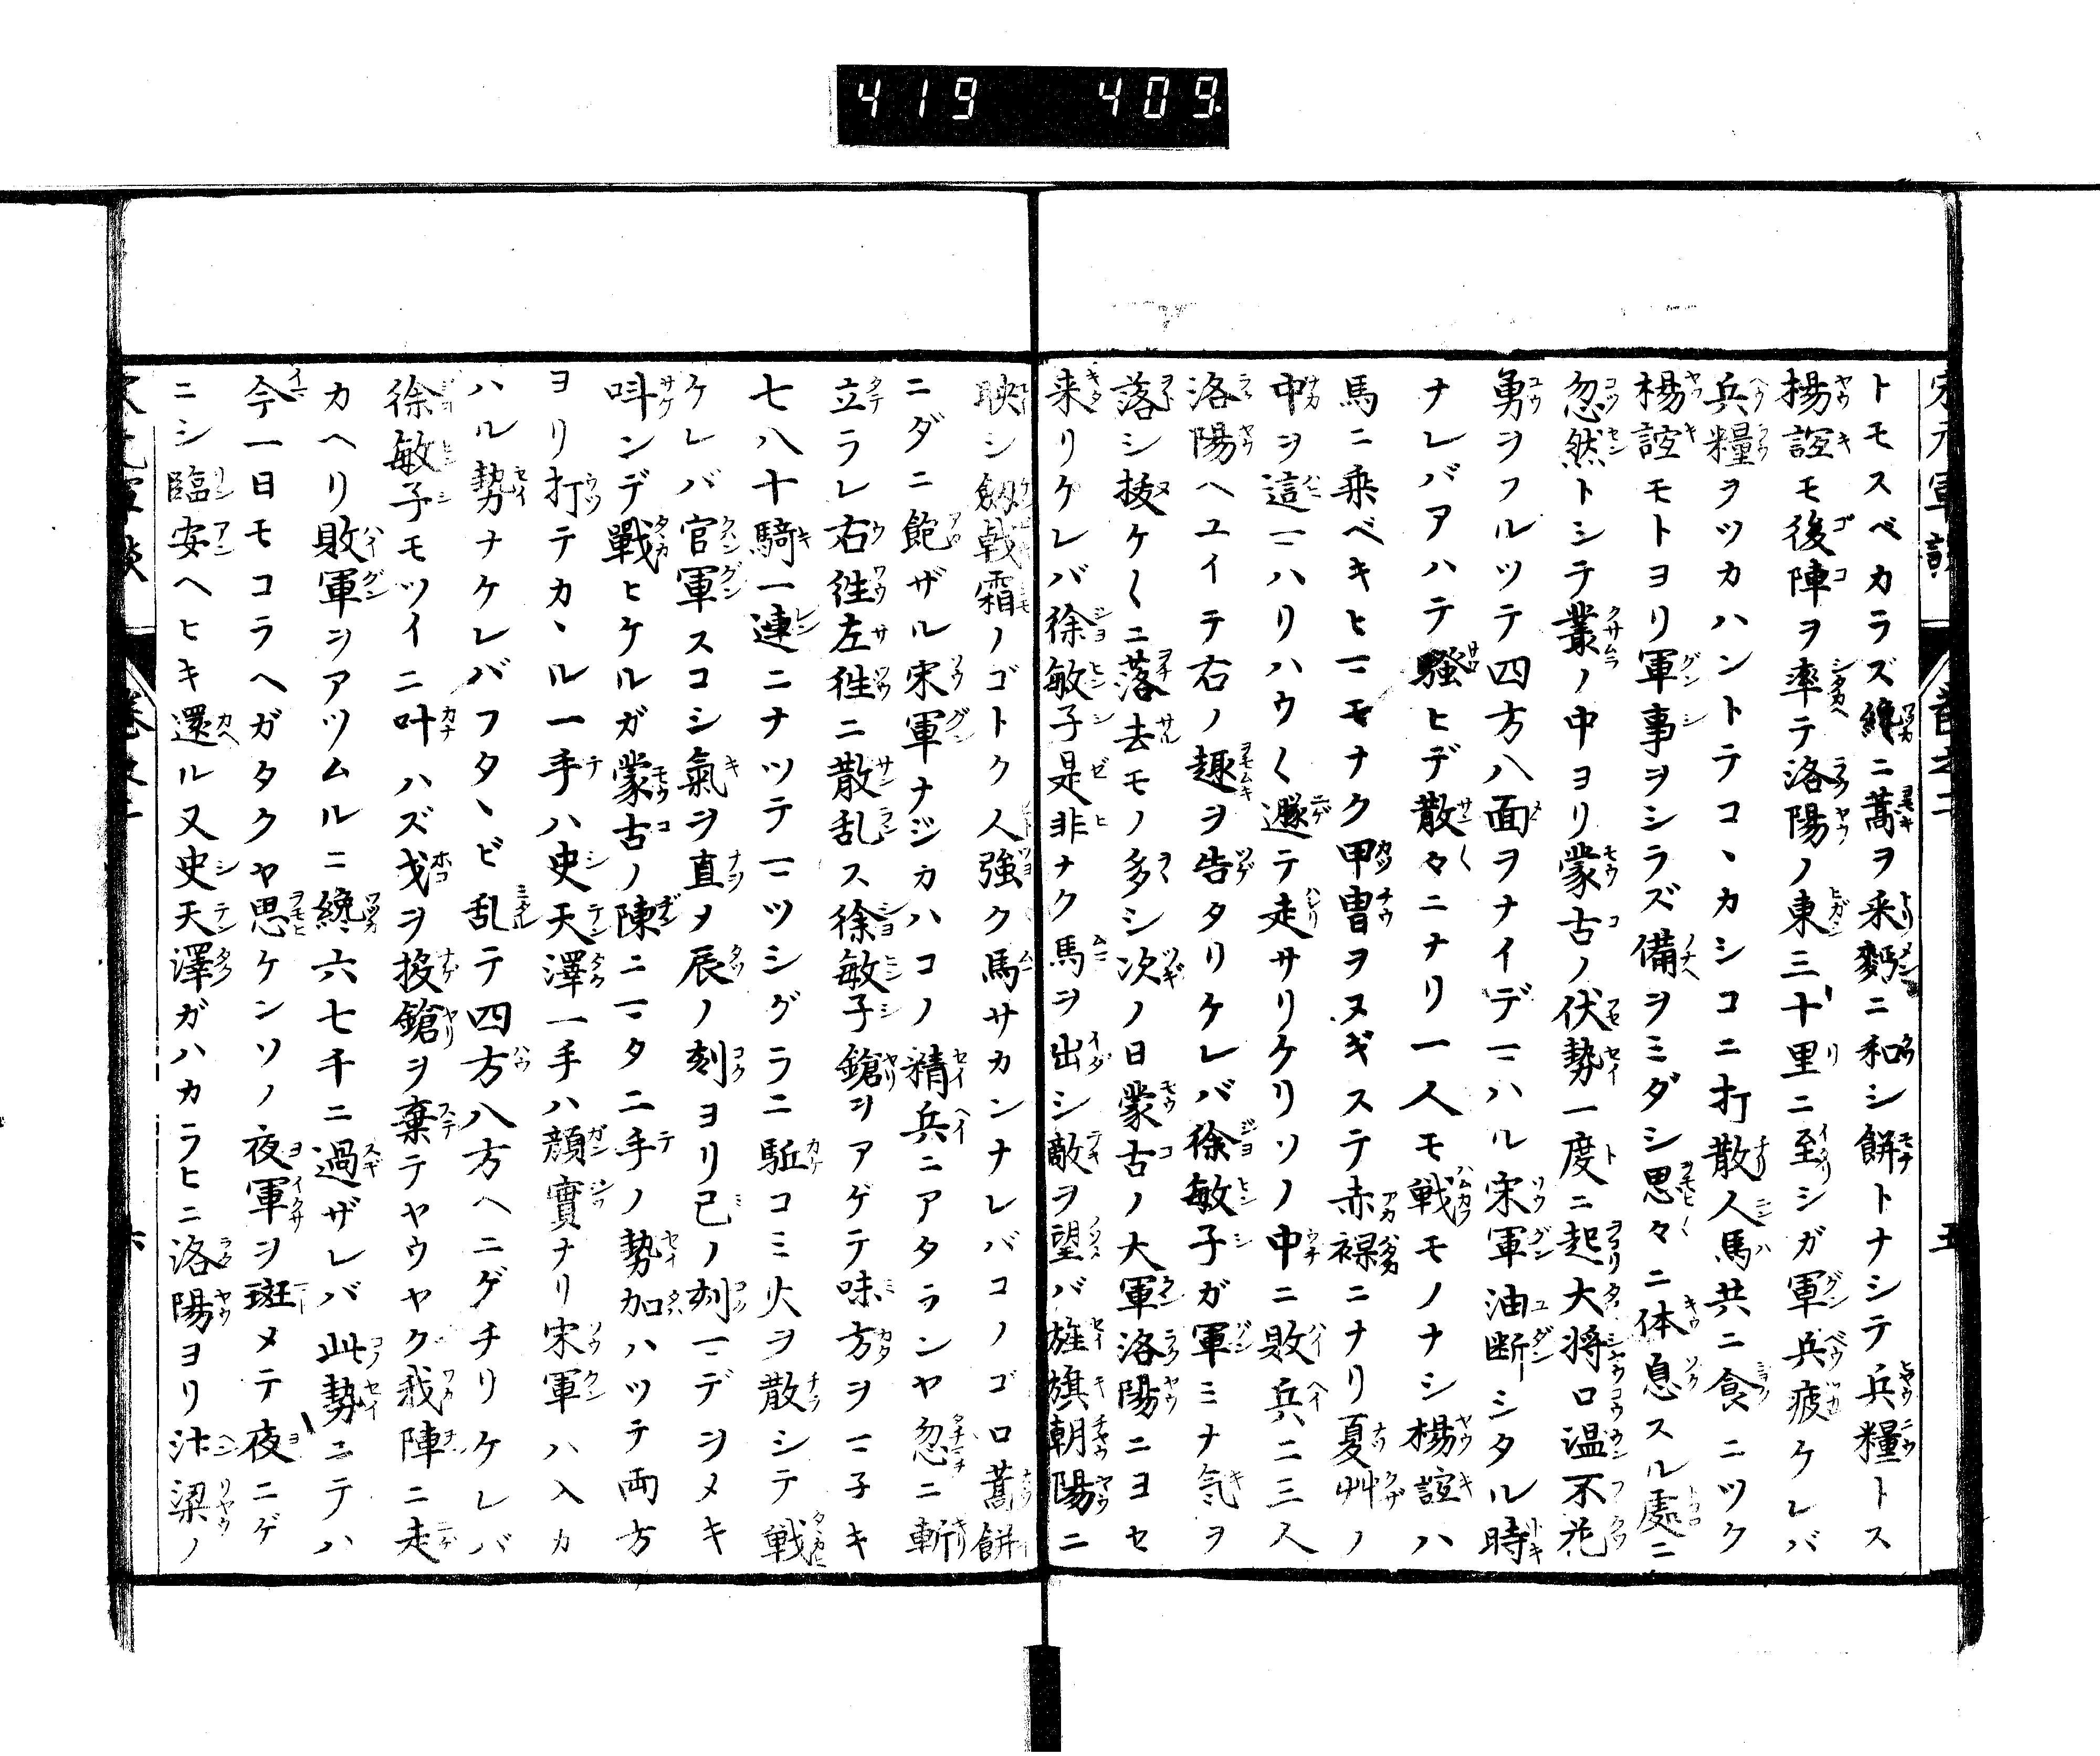 419 409
トモスベカラズ纔ニ蒿ヲ采麪ニ和シ餅トナシテ兵糧トス
楊誼モ後陣ヲ率テ洛陽ノ東三十里ニ至シガ軍兵疲ケレバ
兵糧ヲツカハントテコヽカシコニ打散人馬共ニ食ニツク
楊誼モトヨリ軍事ヲシラズ備ヲミダシ思々ニ休息スル處ニ
忽然トシテ叢ノ中ヨリ蒙古ノ伏勢一度ニ起大将口温不花
勇ヲフルツテ四方八面ヲナイデマハル宋軍油断シタル時
ナレバアハテ騒ヒデ散々ニナリ一人モ戦モノナシ楊誼ハ
馬ニ乗ベキヒマモナク甲冑ヲヌギステ赤裸ニナリ夏艸ノ
中ヲ這マハリハウ〳〵遯テ走サリケリソノ中ニ敗兵二三人
洛陽ヘユイテ右ノ趣ヲ告タリケレバ徐敏子ガ軍ミナ気ヲ
落シ抜ケ〳〵ニ落去モノ多シ次ノ日蒙古ノ大軍洛陽ニヨセ
来リケレバ徐敏子是非ナク馬ヲ出シ敵ヲ望バ旌旗朝陽ニ
映シ劔戟霜ノゴトク人強ク馬サカンナレバコノゴロ蒿餅
ニダニ飽ザル宋軍ナジカハコノ精兵ニアタランヤ忽ニ斬
立ラレ右往左往ニ散乱ス徐敏子鎗ヲアゲテ味方ヲマネキ
七八十騎一連ニナツテマツシグラニ駈コミ火ヲ散シテ戦
ケレバ官軍スコシ氣ヲ直ヲ辰ノ刻ヨリ巳ノ刻マデヲメキ
叫ンデ戰ヒケルガ蒙古ノ陳ニマタ二手ノ勢加ハツテ両方
ヨリ打テカヽル一手ハ史天澤一手ハ顔實ナリ宋軍ハ入カ
ハル勢ナケレバフタヽビ乱テ四方八方ヘニゲチリケレバ
徐敏子モツイニ叶ハズ戈ヲ投鎗ヲ棄テヤウヤク我陣ニ走
カヘリ敗軍ヲアツムルニ纔六七千ニ過ザレバ此勢ニテハ
今一日モコラヘガタクヤ思ケンソノ夜軍ヲ班メテ夜ニゲ
ニシ臨安ヘヒキ還ル又史天澤ガハカラヒニ洛陽ヨリ汴梁ノ